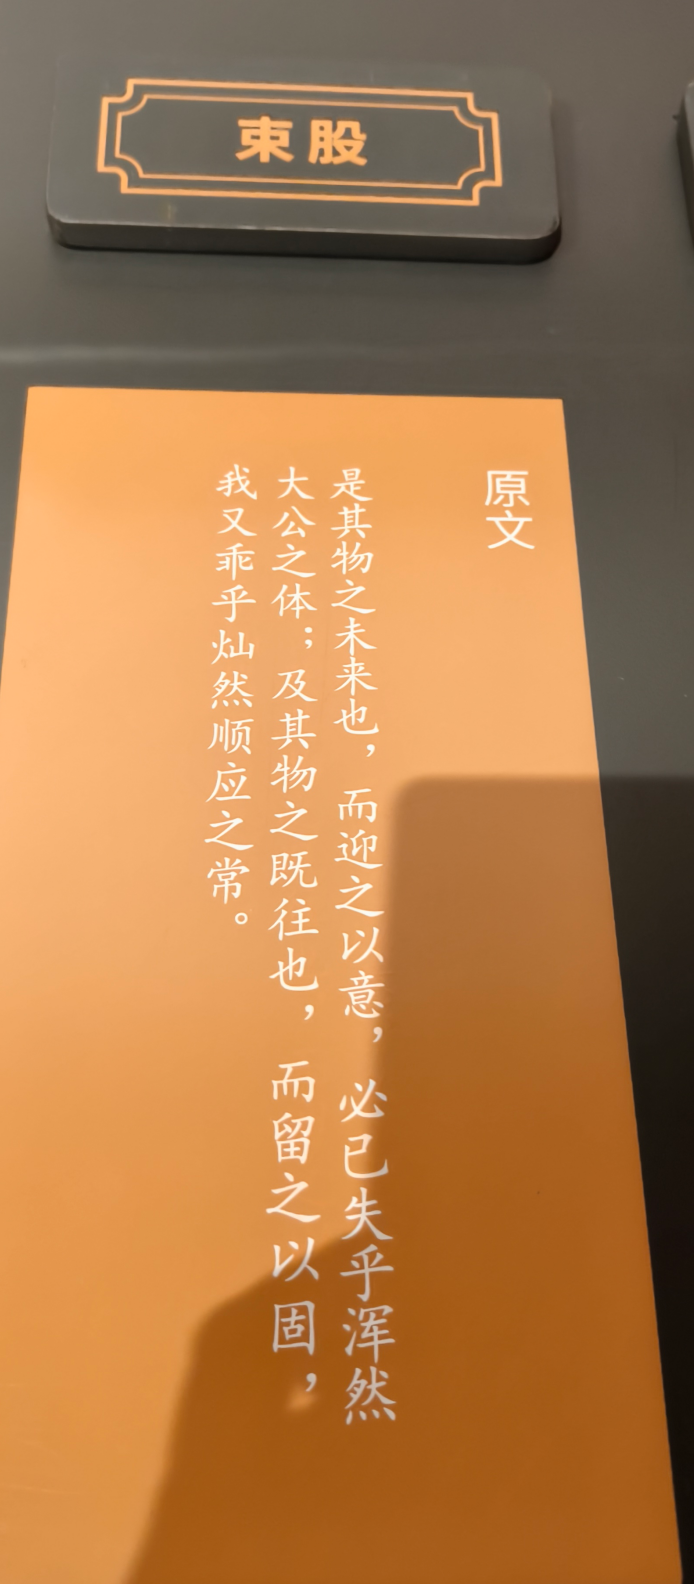 束股
原文
是其物之未来也，而迎之以意，必已失乎浑然
大公之体；及其物之既往也，而留之以固，
我又乖乎灿然顺应之常。